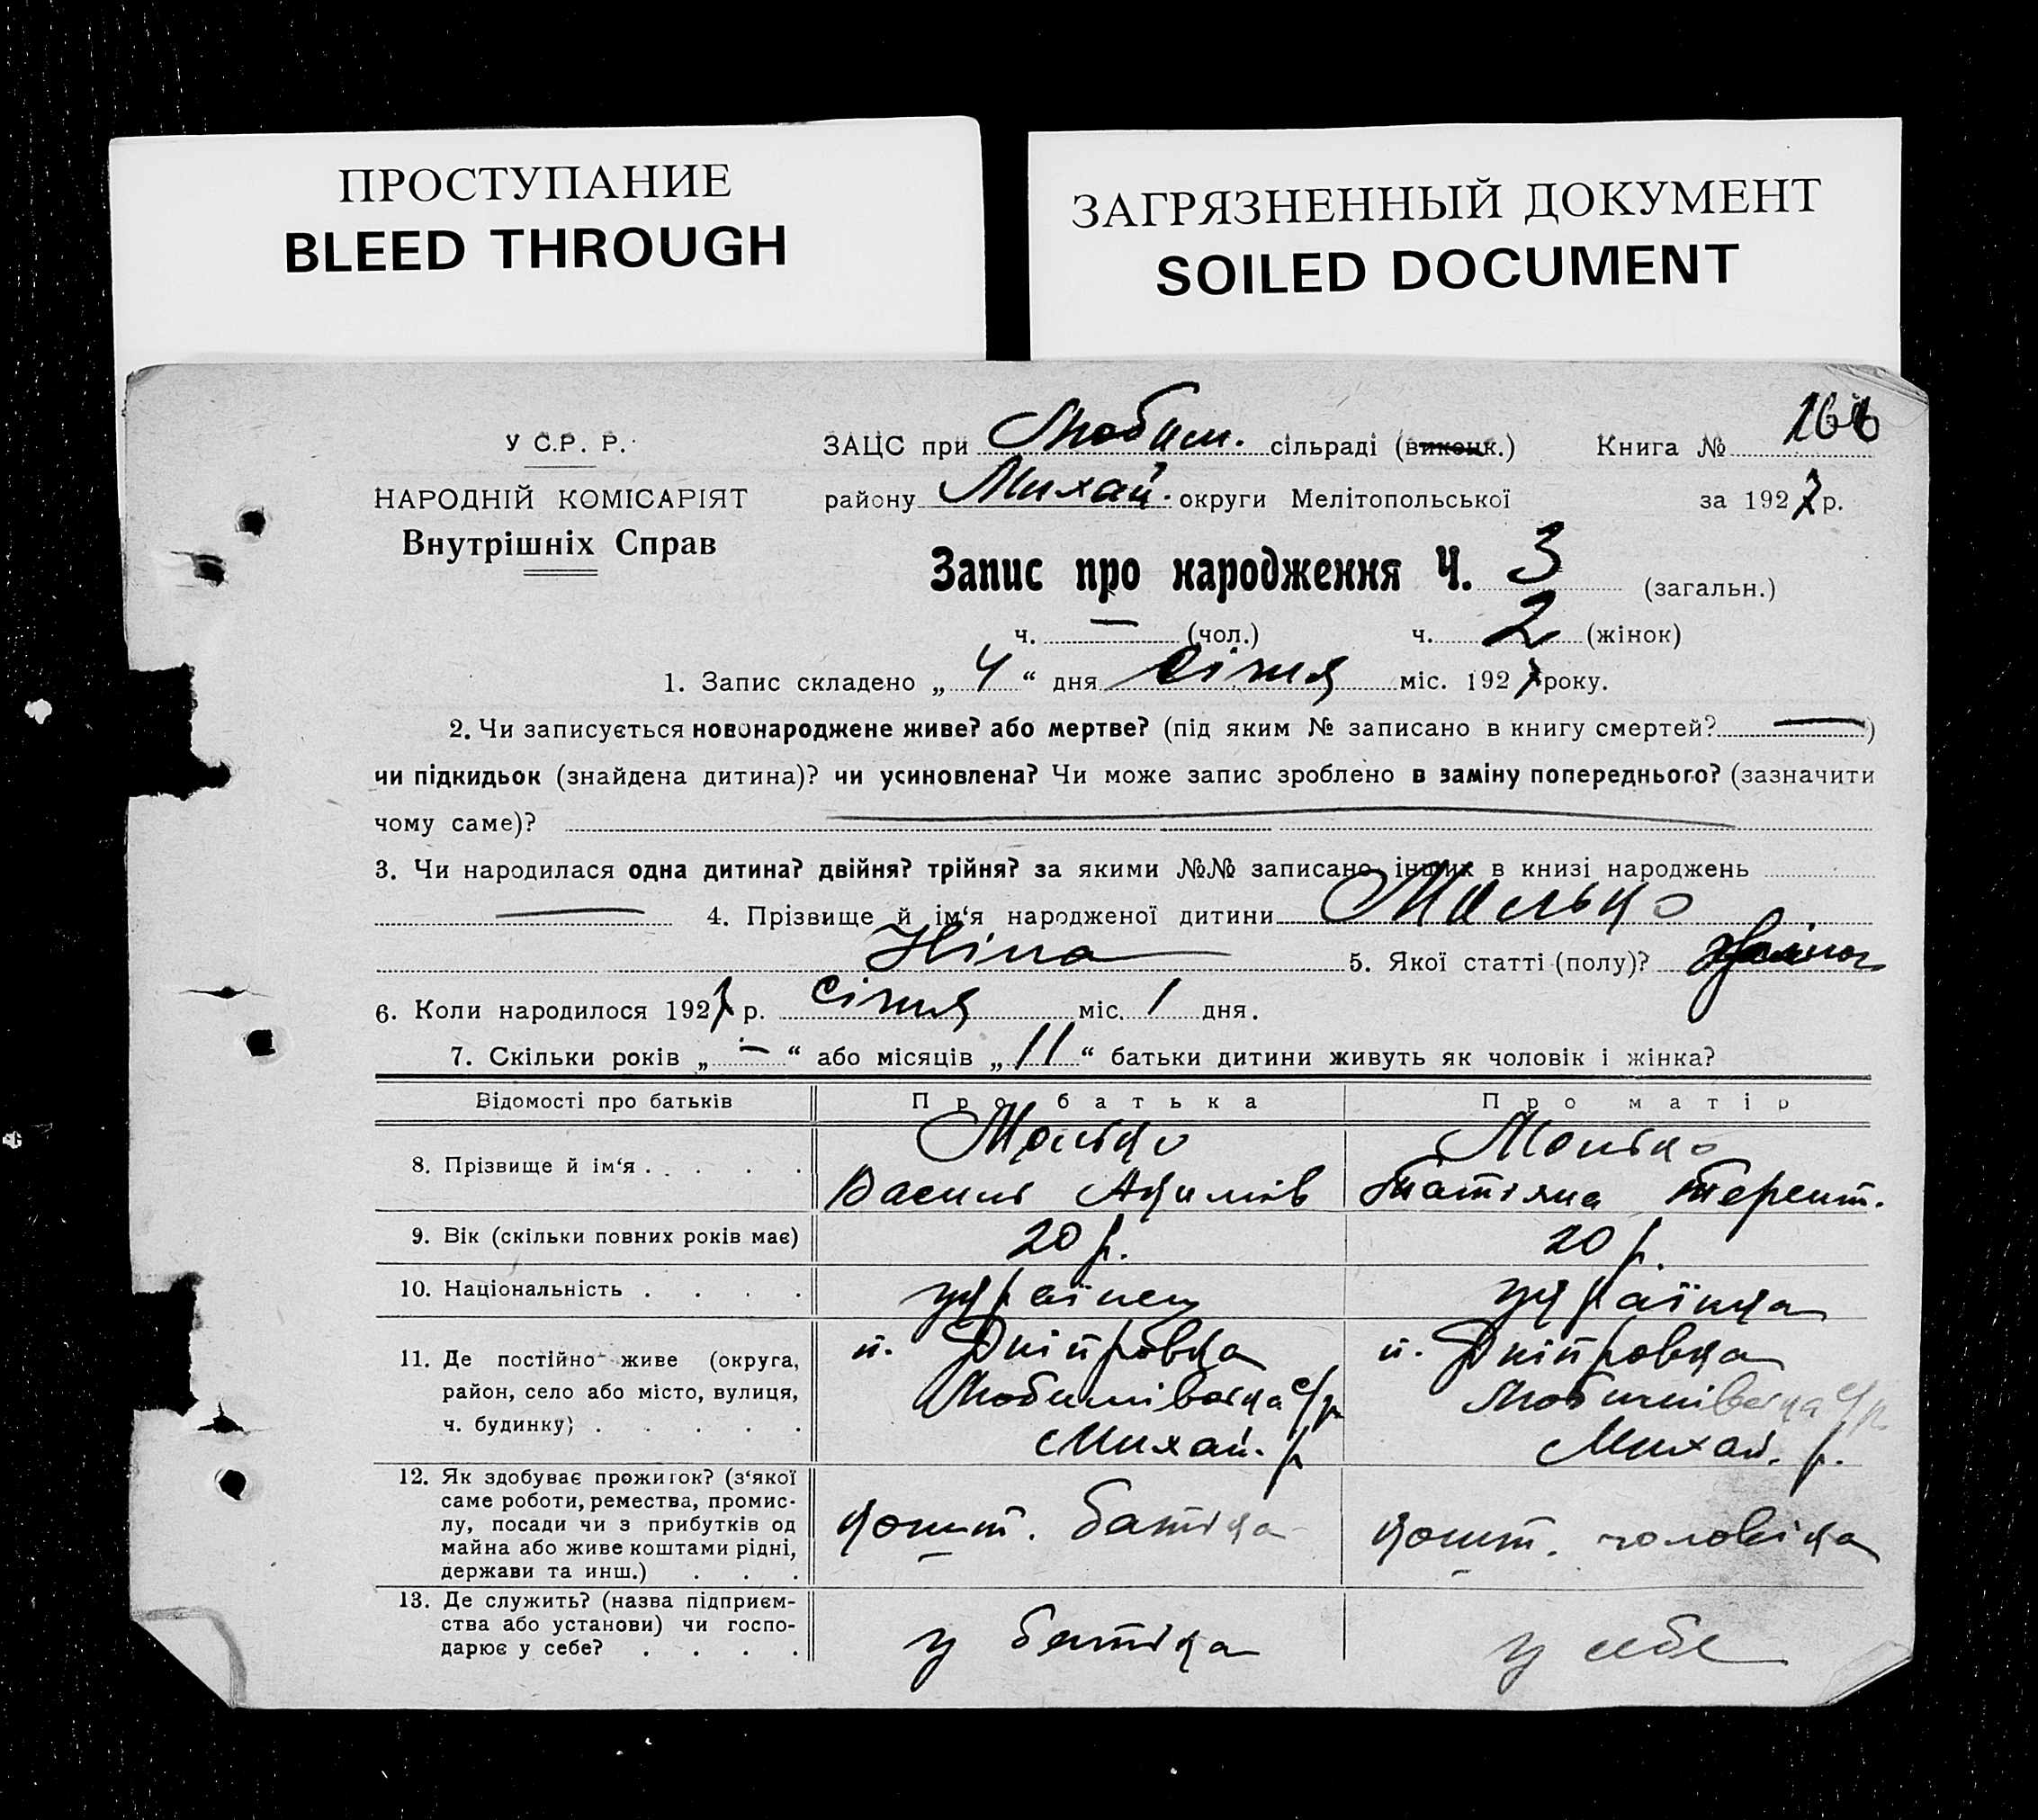 ПРОСТУПАНИЕ
BLEED THROUGH
ЗАГРЯЗНЕННЫЙ ДОКУМЕНТ
SOILED DOCUMENT
У С.Р. Р.
НАРОДНІЙ КОМІСАРІЯТ
Внутрішніх Справ
ЗАЦС при Любим. сільраді (виконк.) Книга №
району Михай. округи Мелітопольської за 1927 р.
Запис про народження Ч. 3 (загальн.)
ч. — (чол.) ч. 2 (жінок)
1. Запис складено „ 4 “ дня січня міс. 1927 року.
2. Чи записується новонароджене живе? або мертве? (під яким № записано в книгу смертей? — )
чи підкидьок (знайдена дитина)? чи усиновлена? Чи може запис зроблено в заміну попереднього? (зазначити
чому саме)? —
3. Чи народилася одна дитина? двійня? трійня? за якими №№ записано інших в книзі народжень
— 4. Прізвище й ім‘я народженої дитини Малько
Ніна 5. Якої статті (полу)?
6. Коли народилося 1927 р. січня міс. 1 дня.
7. Скільки років „ — “ або місяців „ 11 “ батьки дитини живуть як чоловік і жінка?
Відомості про батьків Про батька Про матір
8. Прізвище й ім‘я . . . . . Малько Малько
Василь Якимів Татіяна Терент.
9. Вік (скільки повних років має) 20 р. 20 р.
10. Національність . . . . українец українка
11. Де постійно живе (округа, район, село або місто, вулиця, ч. будинку) . . . . .
п. Дніпровка
Любимівська с/р
Михай. р
п. Дніпровка
Любимівська с/р
Михай. р.
12. Як здобуває прожиток? (з‘якої
саме роботи, ремества, промис-
лу, посади чи з прибутків од
майна або живе коштами рідні,
держави та инш.) . . .
кошт. батька кошт. чоловіка
13. Де служить? (назва підприєм-
ства або установи) чи госпо-
дарює у себе? . . . .
у батька у себе